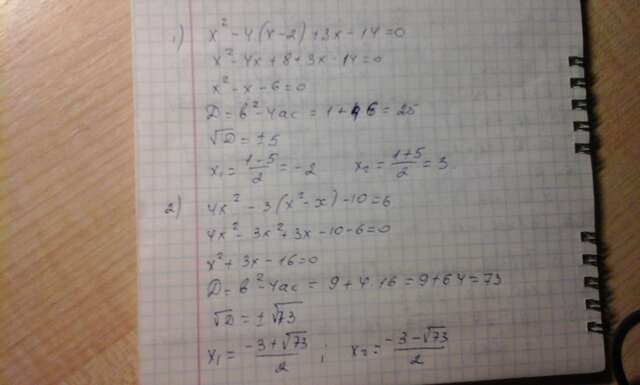 1) x² - 4(x-2) + 3x - 14 = 0
x² - 4x + 8 + 3x - 14 = 0
x² - x - 6 = 0
D = b² - 4ac = 1 + 4·6 = 25
√D = ±5
x₁ = (1-5)/2 = -2    x₂ = (1+5)/2 = 3
2) 4x² - 3(x² - x) - 10 = 6
4x² - 3x² + 3x - 10 - 6 = 0
x² + 3x - 16 = 0
D = b² - 4ac = 9 + 4·16 = 9 + 64 = 73
√D = ±√73
x₁ = (-3+√73)/2 ; x₂ = (-3-√73)/2